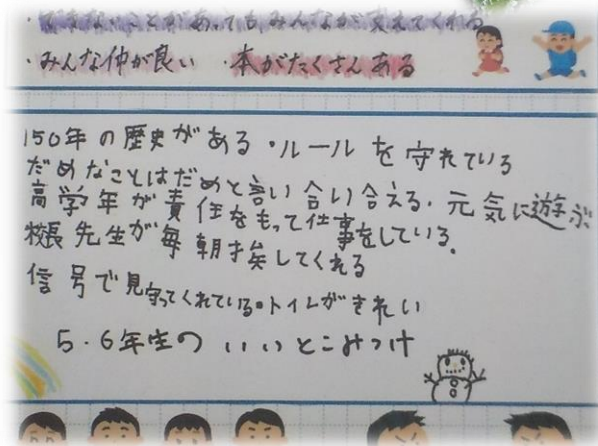 ・できないことがあってもみんなが支えてくれる
・みんな仲が良い ・本がたくさんある
150年の歴史がある・ルールを守れている
だめなことはだめと言い合い合える・元気に遊ぶ
高学年が責任をもって仕事をしている
校長先生が毎朝挨してくれる
信号で見守ってくれている・トイレがきれい
5・6年生のいいとこみつけ